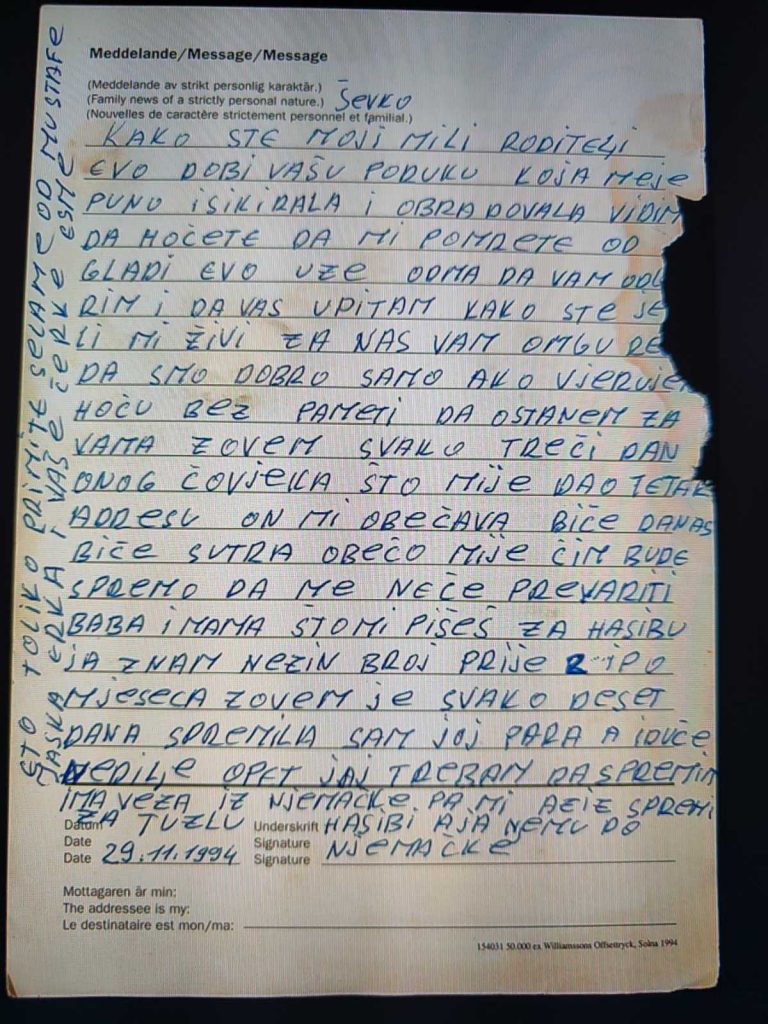 Meddelande/Message/Message
(Meddelande av strikt personlig karaktär.)
(Family news of a strictly personal nature.) ŠEVKO
(Nouvelles de caractère strictement personnel et familial.)
KAKO STE MOJI MILI RODITEĻI
EVO DOBI VAŠU PORUKU KOJA MEJE
PUNO ISIKIRALA I OBRADOVALA VIDIM
DA HOČETE DA MI POMRETE OD
GLADI EVO UZE ODMA DA VAM ODG
RIM I DA VAS UPITAM KAKO STE JE
LI MI ŽIVI ZA NAS VAM
DA SMO DOBRO SAMO AKO VJERUJE
HOĆU BEZ PAMETI DA OSTANEM ZA
VAMA ZOVEM SVAKO TREČI DAN
ONOG ČOVJEKA ŠTO MIJE DAO TETAK
ADRESU ON MI OBEČAVA BIČE DANAS
BIČE SUTRA OBEČO MIJE ČIM BUDE
SPREMO DA ME NEČE PREVARITI
BABA I MAMA ŠTO MI PIŠEŠ ZA HASIBU
JA ZNAM NEZIN BROJ PRIJE 2 IPO
MJESECA ZOVEM JE SVAKO DESET
DANA SPREMILA SAM JOJ PARA A IDUČE
NEDILJE OPET JAJ TREBAM DA SPREMIM
IMA VEZA IZ NJEMAČKE PA MI AZIZ SPREMI
ZA TUZLU HASIBI AJA NEMU DO
NJEMAČKE
Datum
Date
Date 29.11.1994
Underskrift
Signature
Signature
Mottagaren är min:
The addressee is my:
Le destinataire est mon/ma:
154031 50.000 ex Williamssons Offsettryck, Solna 1994
ETO TOLIKO PRIMITE SELAME OD MUSTAFE
JASKA ERKA I VAŠE ČERKE ESME